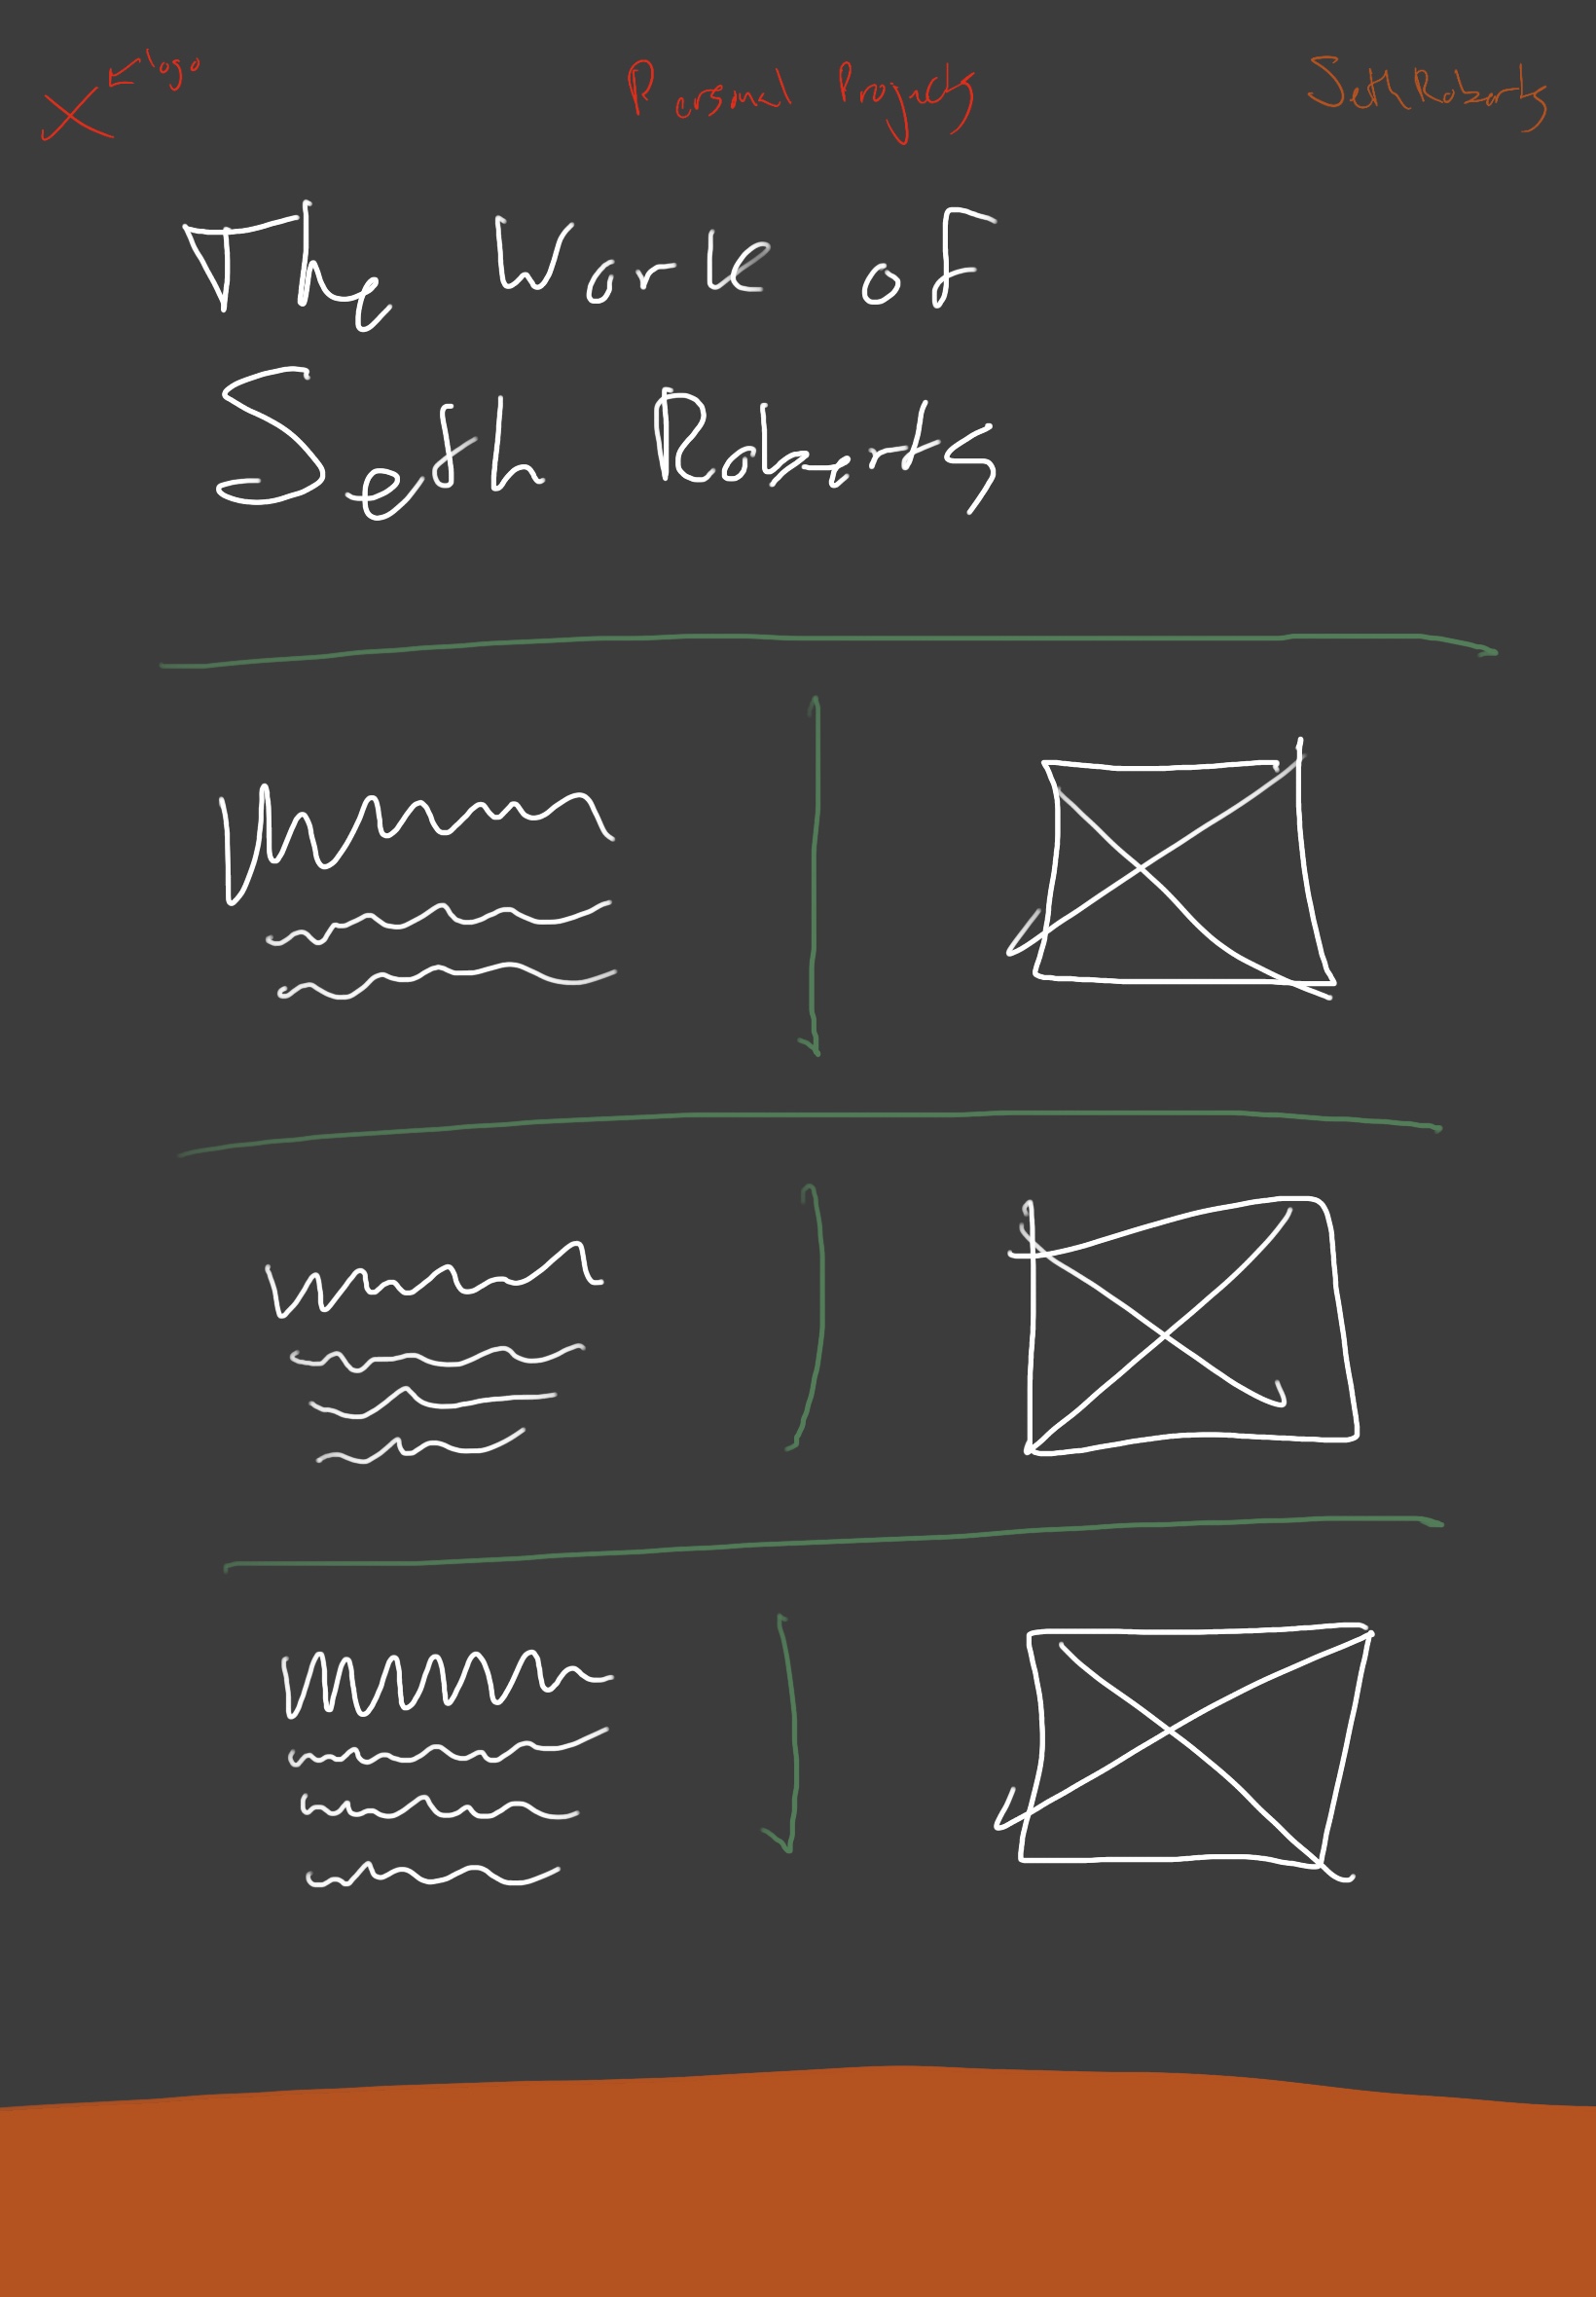 logo
Personal Projects
Seth Roberts
The Work of
Seth Roberts